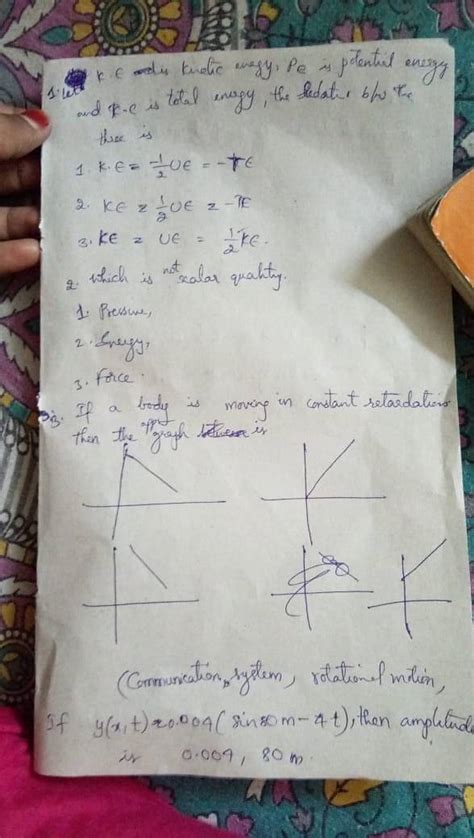 K.E is kinetic energy, PE is potential energy
1. Let
and T.E is total energy, the relation b/w the
three is
1. K.E = -1/2 UE = -TE
2. KE = 1/2 UE = -TE
3. KE = UE = 1/2 KE.
2. which is not scalar quantity.
1. Pressure,
2. Energy,
3. Force.
3. If a body is moving in constant retardation
then the graph is
(Communication system, rotational motion,
If y(x,t) = 0.009 (sin 80 m - 4t), then amplitude
is 0.009, 80 m.